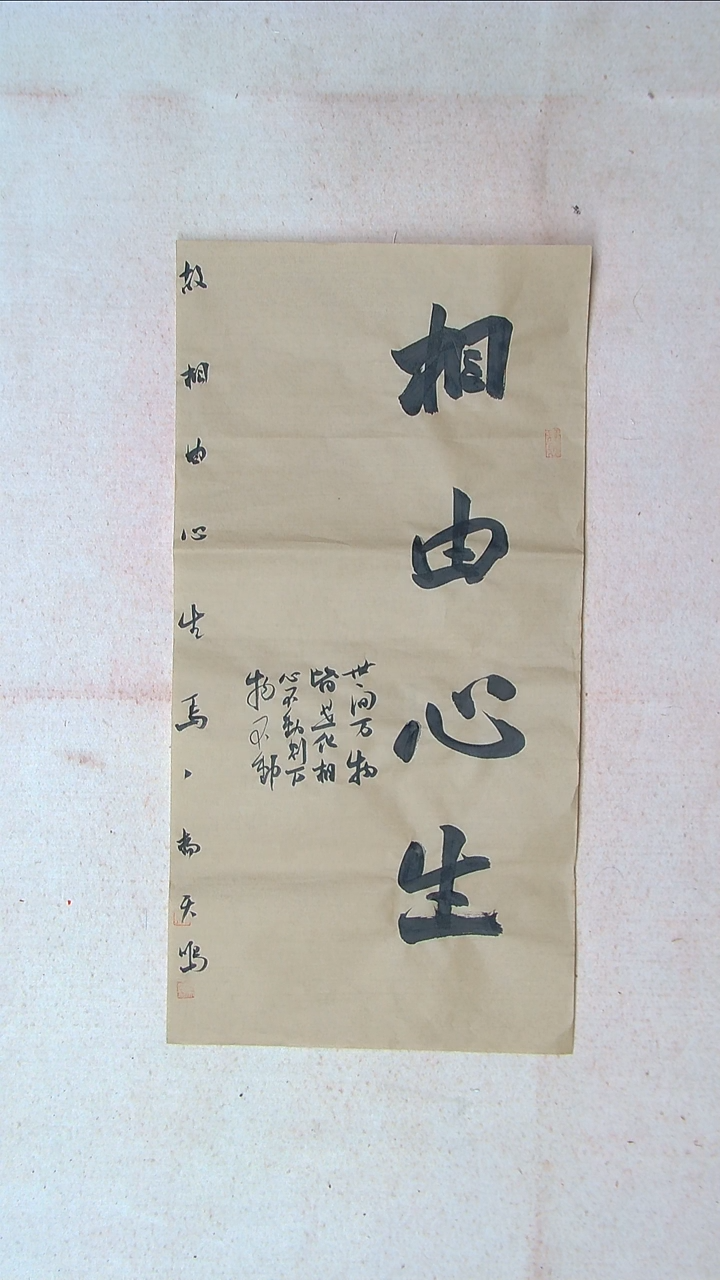 相由心生
世间万物
皆是化相
心不動则万
物不動
故相由心生焉，尚天鳴